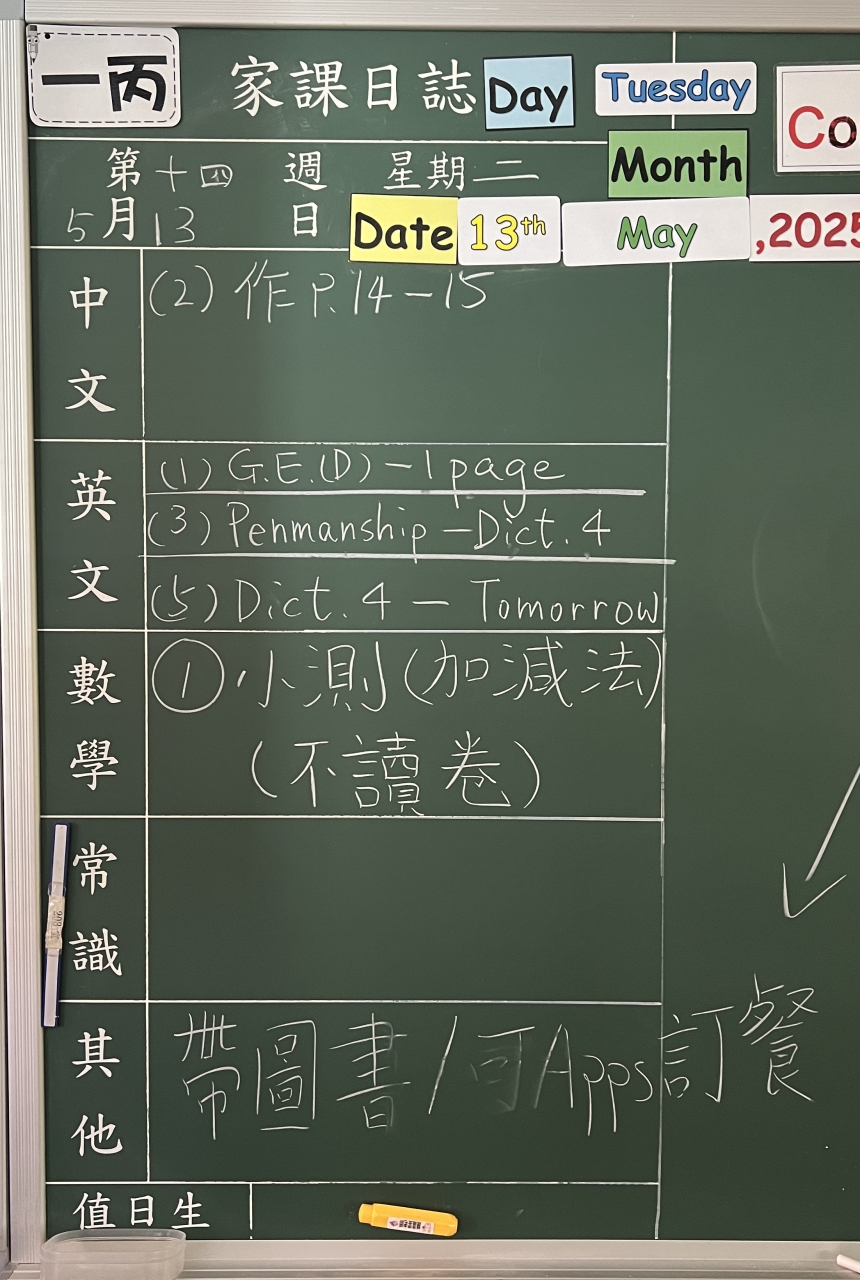 一丙 家課日誌 Day Tuesday Co
第十四週 星期二 Month
5月13日 Date 13th May ,2025
中文 (2) 作 P.14-15
英文 (1) G.E.(D) - 1 page
(3) Penmanship - Dict. 4
(5) Dict. 4 - Tomorrow
數學 ① 小測(加減法)
(不讀卷)
常識
其他 帶圖書/可Apps訂餐
值日生